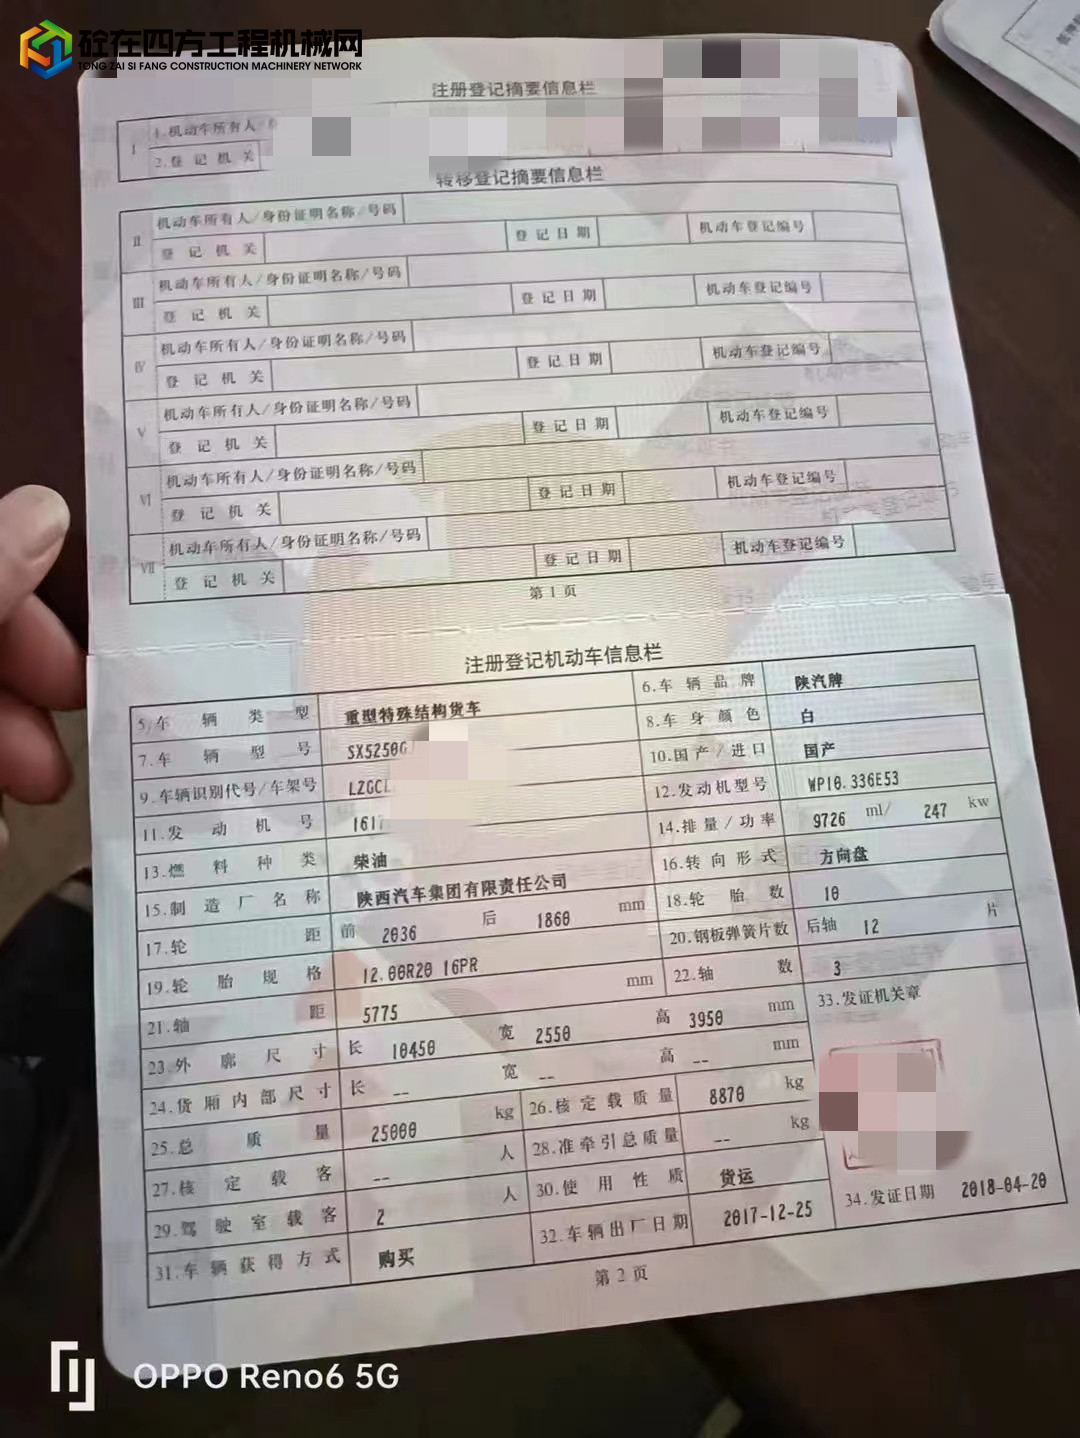 砼在四方工程机械网
TONG ZAI SI FANG CONSTRUCTION MACHINERY NETWORK
注册登记摘要信息栏
I 1.机动车所有人/
2.登记机关
转移登记摘要信息栏
II 机动车所有人/身份证明名称/号码
登记机关 登记日期 机动车登记编号
III 机动车所有人/身份证明名称/号码
登记机关 登记日期 机动车登记编号
IV 机动车所有人/身份证明名称/号码
登记机关 登记日期 机动车登记编号
V 机动车所有人/身份证明名称/号码
登记机关 登记日期 机动车登记编号
VI 机动车所有人/身份证明名称/号码
登记机关 登记日期 机动车登记编号
VII 机动车所有人/身份证明名称/号码
登记机关 登记日期 机动车登记编号
第1页
注册登记机动车信息栏
5.车辆类型 重型特殊结构货车 6.车辆品牌 陕汽牌
7.车辆型号 SX5250G 8.车身颜色 白
9.车辆识别代号/车架号 LZGCL 10.国产/进口 国产
11.发动机号 1617 12.发动机型号 WP10.336E53
13.燃料种类 柴油 14.排量/功率 9726 ml/ 247 kw
15.制造厂名称 陕西汽车集团有限责任公司 16.转向形式 方向盘
17.轮距 前 2036 后 1860 mm 18.轮胎数 10
19.轮胎规格 12.00R20 16PR 20.钢板弹簧片数 后轴 12 片
21.轴距 5775 mm 22.轴数 3
23.外廓尺寸 长 10450 宽 2550 高 3950 mm 33.发证机关章
24.货厢内部尺寸 长 -- 宽 -- 高 -- mm
25.总质量 25000 kg 26.核定载质量 8870 kg
27.核定载客 -- 人 28.准牵引总质量 -- kg
29.驾驶室载客 2 人 30.使用性质 货运
31.车辆获得方式 购买 32.车辆出厂日期 2017-12-25 34.发证日期 2018-04-20
第2页
OPPO Reno6 5G